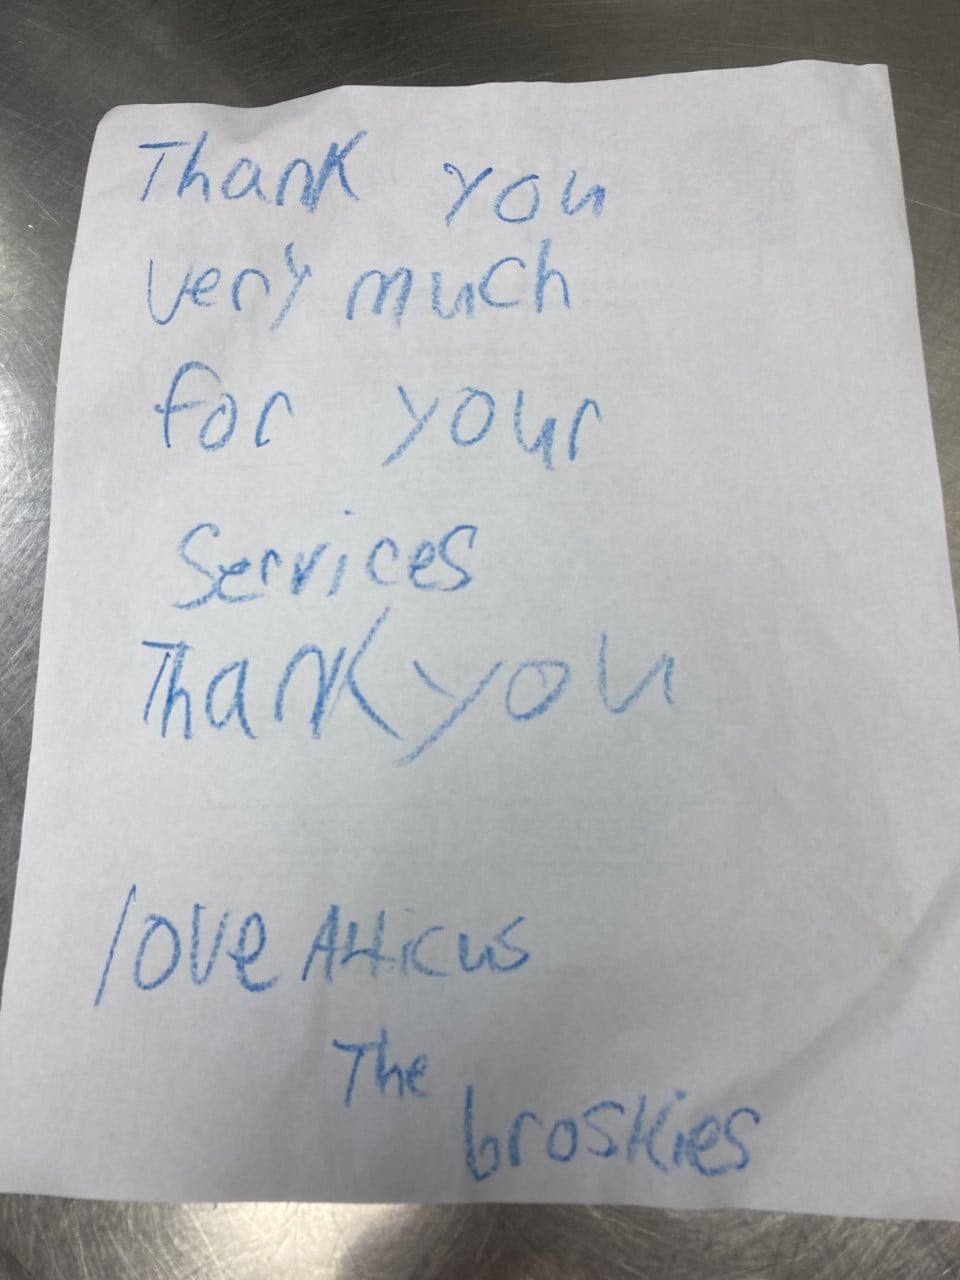 Thank you
very much
for your
Services
Thank you
love Atticus
The
broskies